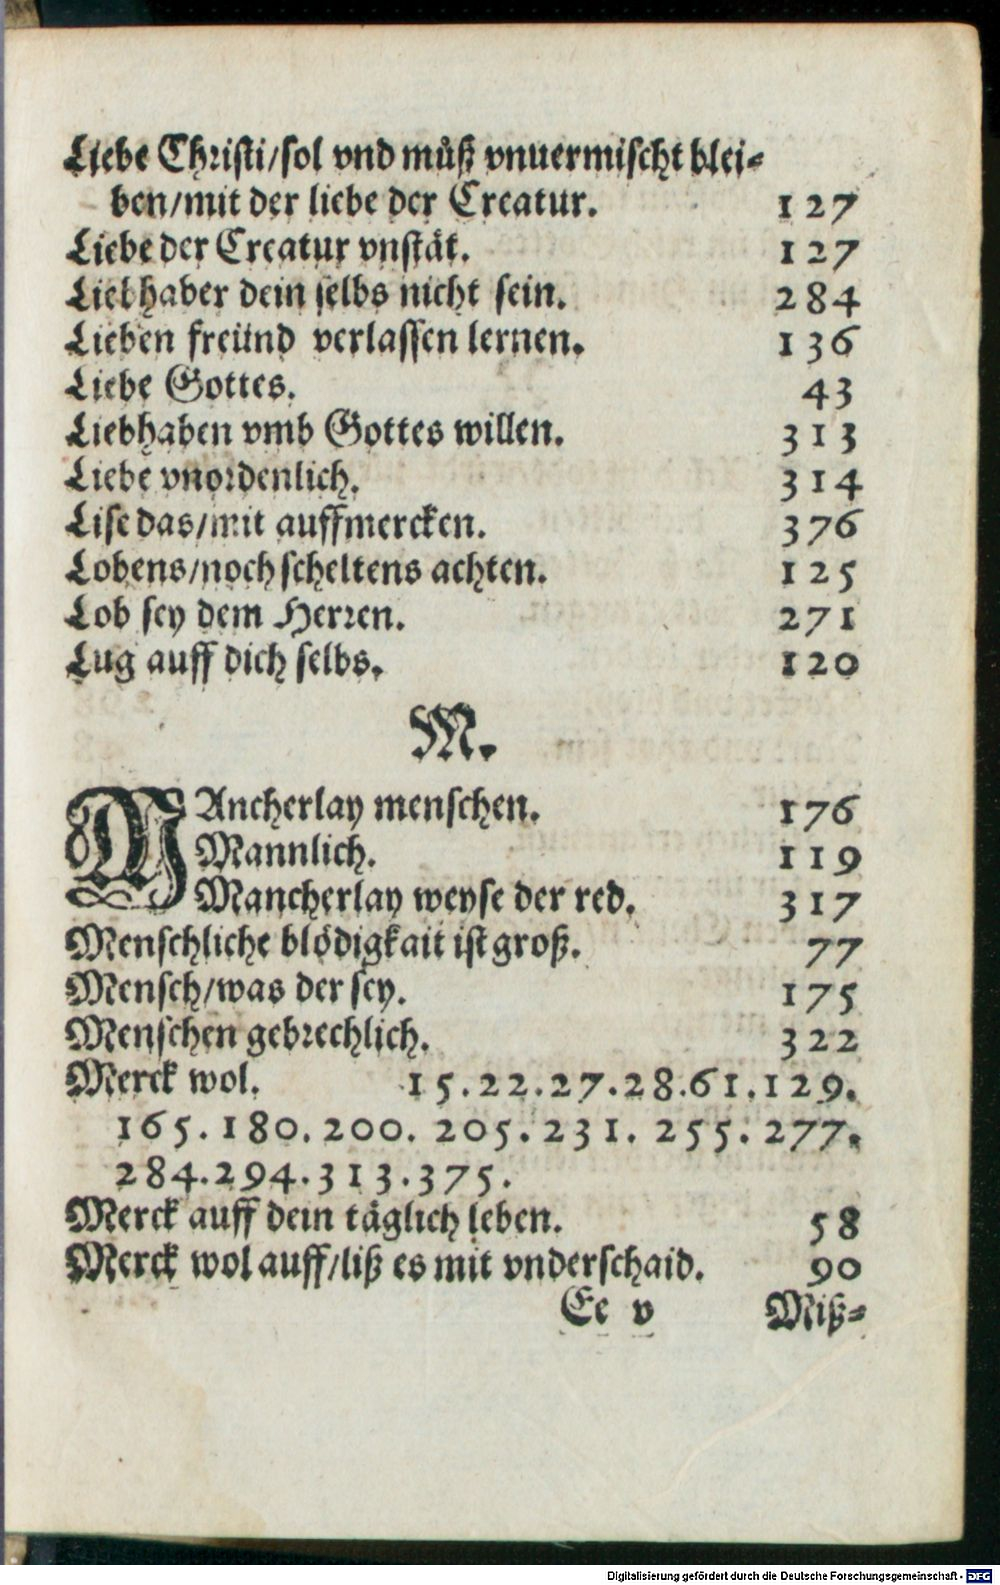 Liebe Christi/sol vnd můß vnuermischt blei-
ben/mit der liebe der Creatur. 127
Liebe der Creatur vnstät. 127
Liebhaber dein selbs nicht sein. 284
Lieben freünd verlassen lernen. 136
Liebe Gottes. 43
Liebhaben vmb Gottes willen. 313
Liebe vnordenlich. 314
Lise das/mit auffmercken. 376
Lobens/noch scheltens achten. 125
Lob sey dem Herren. 271
Lug auff dich selbs. 120
M.
MAncherlay menschen. 176
Mannlich. 119
Mancherlay weyse der red. 317
Menschliche blödigkait ist groß. 77
Mensch/was der sey. 175
Menschen gebrechlich. 322
Merck wol. 15.22.27.28.61.129.
165.180.200.205.231.255.277.
284.294.313.375.
Merck auff dein täglich leben. 58
Merck wol auff/liß es mit vnderschaid. 90
Ee v Miß-
Digitalisierung gefördert durch die Deutsche Forschungsgemeinschaft - DFG